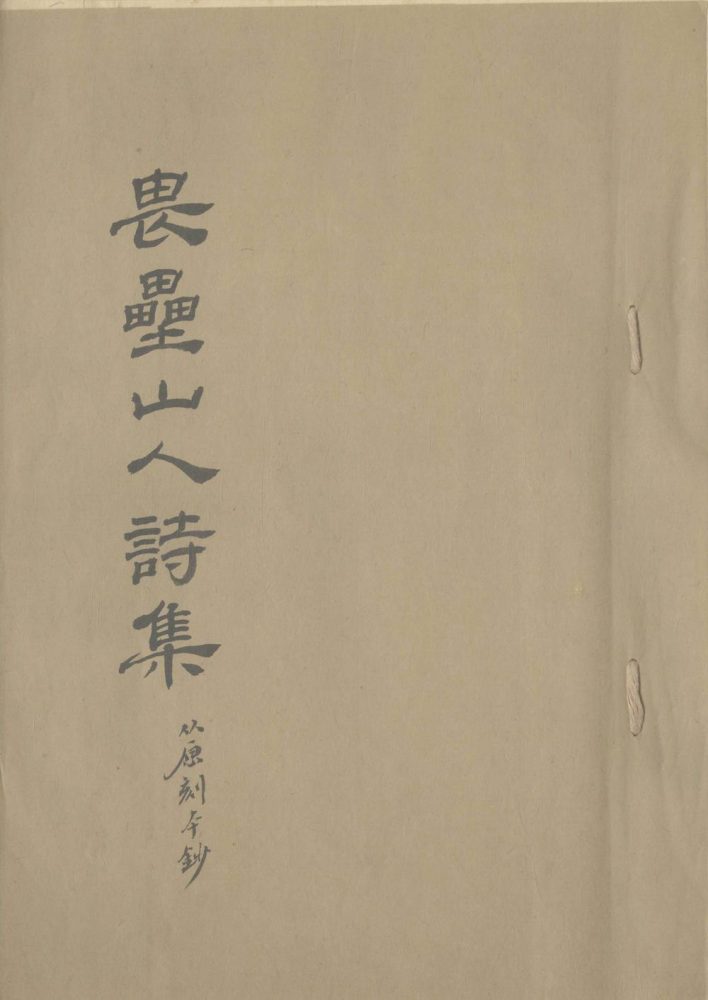 畏壘山人詩集
从原刻本鈔